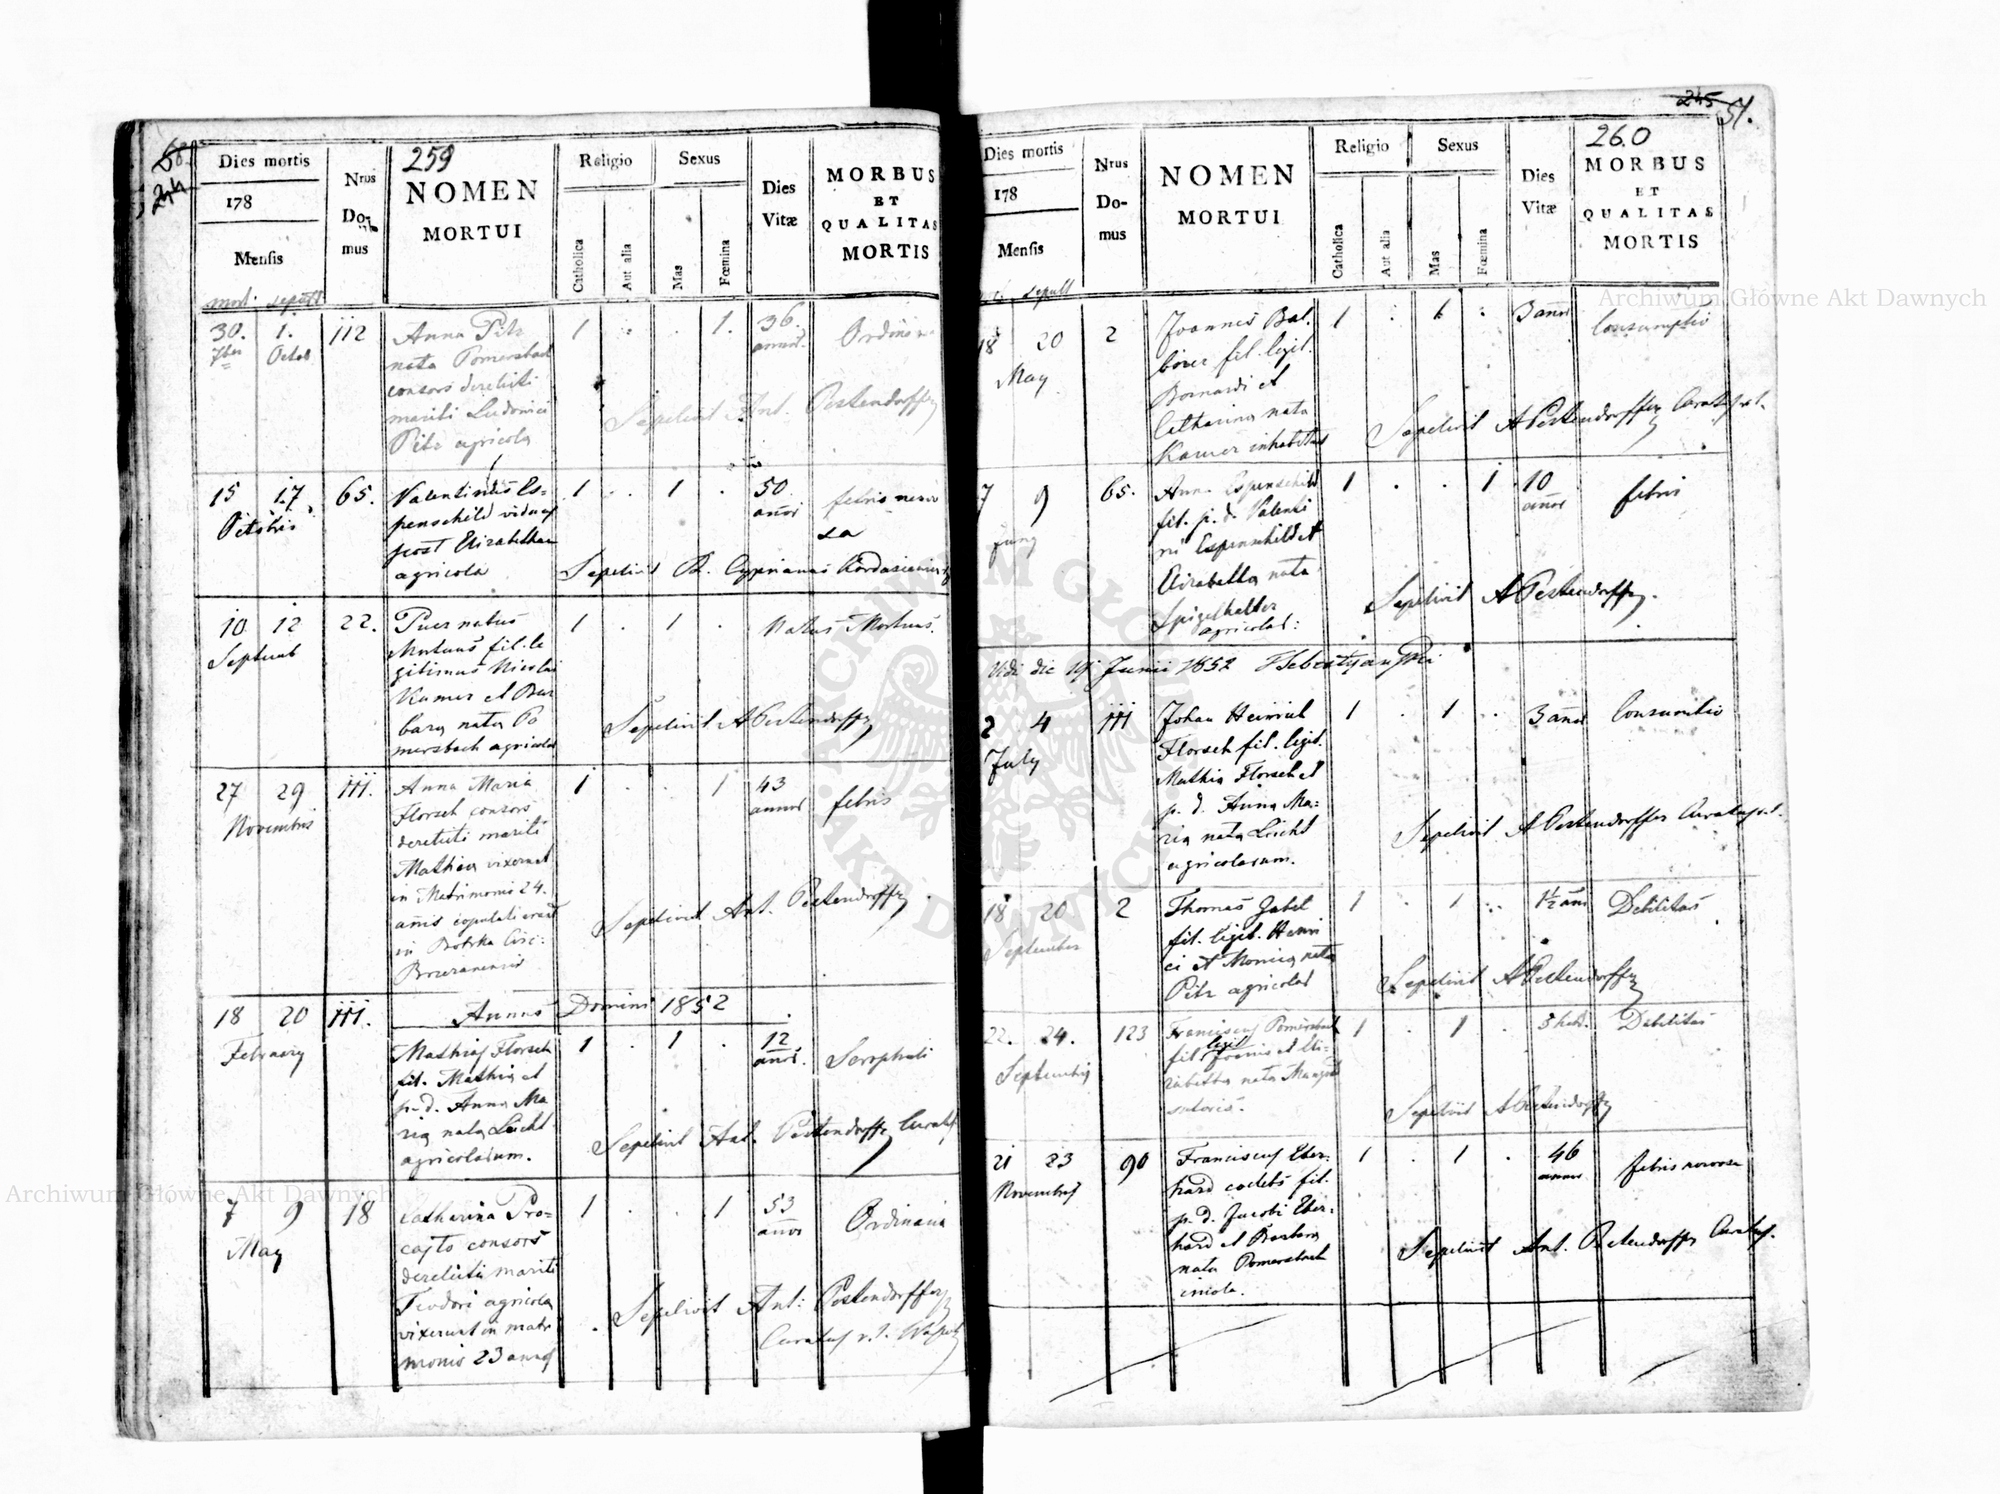 259
Dies mortis
178
Mensis
mort. sepult
Nrus
Do-
mus
NOMEN
MORTUI
Religio
Catholica
Aut alia
Sexus
Mas
Fœmina
Dies
Vitæ
MORBUS
ET
QUALITAS
MORTIS
30. 1. 112 Anna Pitz 1 . . 1. 36
7bris Octob nata Pomersbach annor. Ordinaria
consors derelicti
mariti Ludovici Sepelivit Ant. Pestendorffer
Pitz agricola
15 17 65. Valentinus Es= 1 . . 1 . 50 febris nervo
Octobris penschild viduus annor sa
post Elizabetham
agricola Sepelivit R. Cyprianus
10 12 22. Puer natus 1 . 1 . Natus Mortuus.
Septemb Mortuus fil. le
gitimus Nicolai
Kamer et Bar
bara nata Po Sepelivit A Pestendorffer
mersbach agricola
27 29 111. Anna Maria 1 . . 1 43 febris
Novembris Florsch consors annor
derelicti mariti
Mathia vixerunt
in Matrimonio 24. Sepelivit Ant. Pestendorffer
annis copulati erant
in
Brzezanensis
18 20 111. Annus Domini 1852
February Mathias Florsch 1 . 1 . 12 Scrophuli
fil. Mathia et annor.
p. d. Anna Ma
ria nata Leicht Sepelivit Ant. Pestendorffer Curatus
agricolarum.
7 9 18 Catharina Pro= 1 . . 1 53 Ordinaria
May cajlo consors annor
derelicti mariti
Teodori agricola Sepelivit Ant: Pestendorffer
vixerunt in matri Curatus r. l.
monio 23 annos
245
51.
260
Dies mortis
178
Mensis
sepult
Nrus
Do-
mus
NOMEN
MORTUI
Religio
Catholica
Aut alia
Sexus
Mas
Fœmina
Dies
Vitæ
MORBUS
ET
QUALITAS
MORTIS
18 20 2 Joannes Bal. 1 . 1 . 3 annor Consumptio
May fil. legit.
Bernardi et
Catharina nata Sepelivit A Pestendorffer Curatus r. l.
Kamer
7 9 65. Anna Espenschild 1 . . 1 10 febris
Juny fil. p. d. Valenti annor
ni Espenschild et
Elizabetha nata Sepelivit A Pestendorffer.
Spigelhalter
agricolar:
Vidi die 19 Junii 1852
2 4 111 Johan Heinrich 1 . 1 . 3 annor Consumtio
July Florsch fil. legit.
Mathia Florsch et
p. d. Anna Ma=
ria nata Leicht Sepelivit A Pestendorffer Curatus r. l.
agricolarum.
18 20 2 Thomas Zabel 1 . 1 . 1½ ann Debilitas
September fil. legit. Henri
ci et Monica nata Sepelivit A Pestendorffer
Pitz agricolar
22. 24. 123 Franciscus Pomersbach 1 . 1 . 3 Debilitas
Septembris fil legit Joanis et Eli=
zabetha nata
sutoris. Sepelivit A Pestendorffer
21 23 90 Franciscus Eber= 1 . 1 . 46 febris nervosa
Novembris hard cœlebs fil. annor
p. d. Jacobi Eber=
hard et Barbara Sepelivit Ant. Pestendorffer Curatus.
nata Pomersbach
incola.
Archiwum Główne Akt Dawnych
Archiwum Główne Akt Dawnych
ARCHIWUM GŁÓWNE AKT DAWNYCH